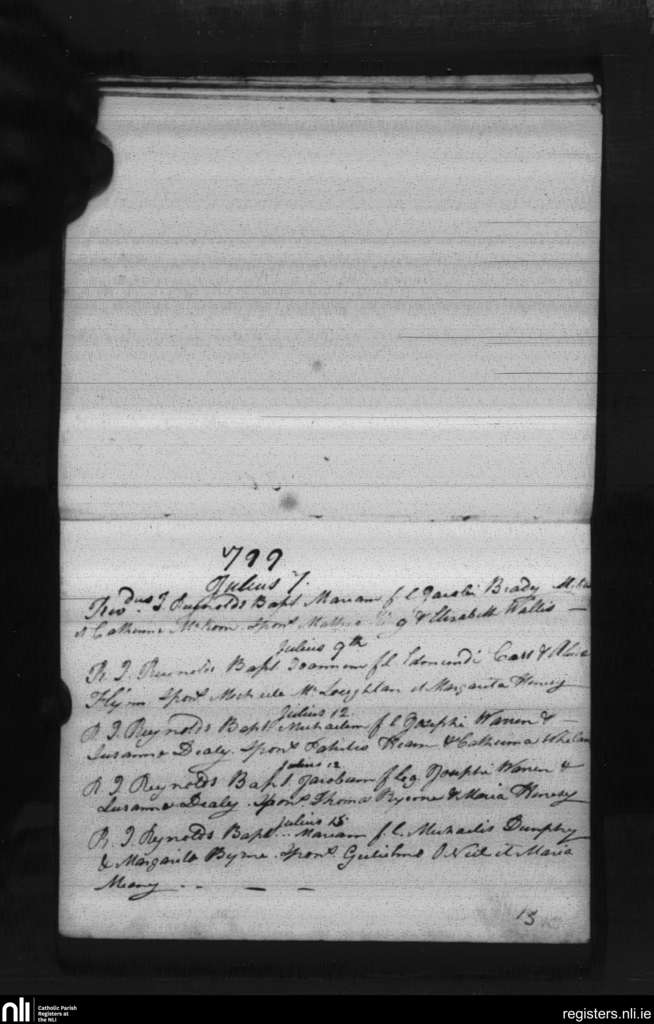 799
Julius 7.
Revdus J. Reynolds Bapt Mariam f l Jacobi Brady
& Catherine Spont & Elizabeth Wallis —
Julius 9th
R. J. Reynolds Bapt Joannem f l Edmundi Cass &
Flynn Spont Michaele McLoughlan et Margarita Henesy
Julius 12
R J. Reynolds Bapt Michaelem f l Josephi Warren & —
Susanna Dealy. Spont Patritio & Catherina Whelan
Julius 12
R J Reynolds Bapt Jacobum f leg Josephi Warren &
Susanna Dealy. Spont Thoma Byrne & Maria Henesy
Julius 15
R. J. Reynolds Bapt.. Mariam f. l. Michaelis Dumphy
& Margarita Byrne. Spont. Gulielmo O Neil et Maria
Meany - - — —
13
nli
Catholic Parish
Registers at
the NLI
registers.nli.ie